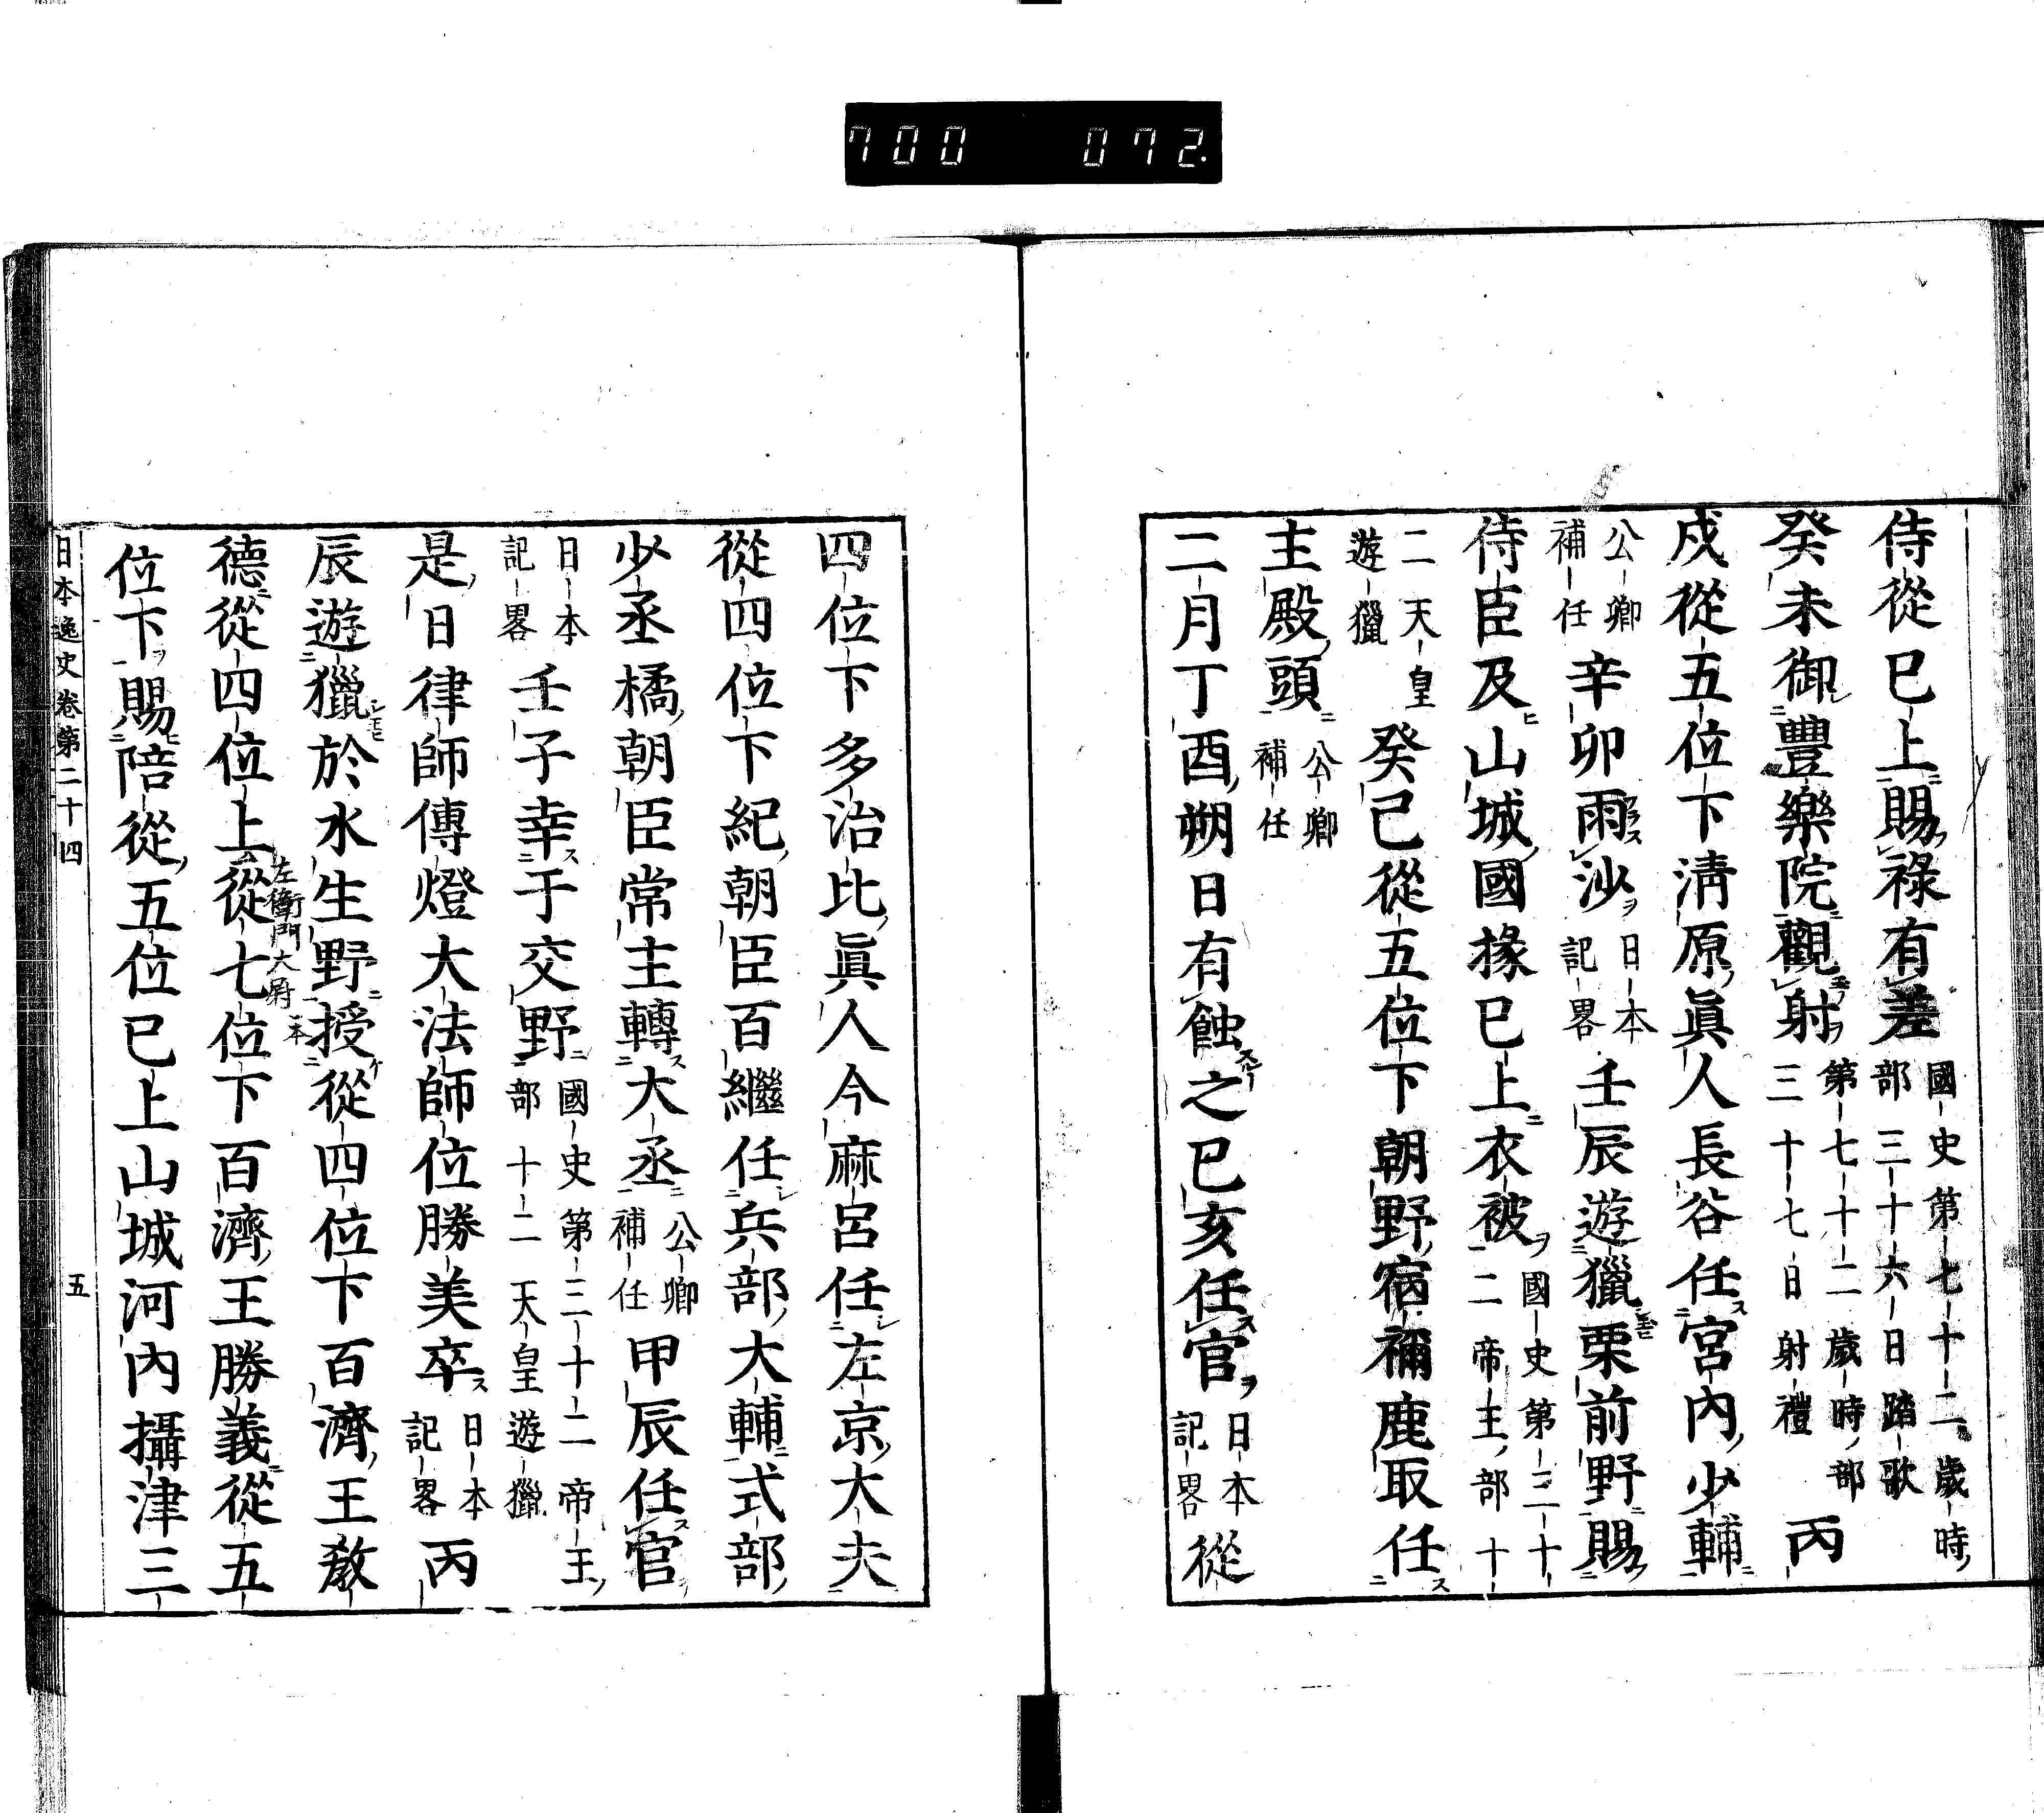 700 072.
侍從已上賜祿有差國史第七十二歲時部三十六日踏歌
癸未御豐樂院觀射第七十二歲時部三十七日射禮丙
戌從五位下清原眞人長谷任宮內少輔
公卿補任辛卯雨沙日本記畧壬辰遊獵栗前野賜
侍臣及山城國掾已上衣被國史第三十二帝王部十
二天皇遊獵癸巳從五位下朝野宿禰鹿取任
主殿頭公卿補任
二月丁酉朔日有蝕之己亥任官日本記畧從
四位下多治比眞人今麻呂任左京大夫
從四位下紀朝臣百繼任兵部大輔式部
少丞橘朝臣常主轉大丞公卿補任甲辰任官
日本記畧壬子幸于交野國史第三十二帝王部十二天皇遊獵
是日律師傳燈大法師位勝美卒日本記畧丙
辰遊獵於水生野授從四位下百濟王教
德從四位上從七位下百濟王勝義從五
左衛門大尉一本
位下賜陪從五位已上山城河內攝津三
日本逸史卷第二十四 五